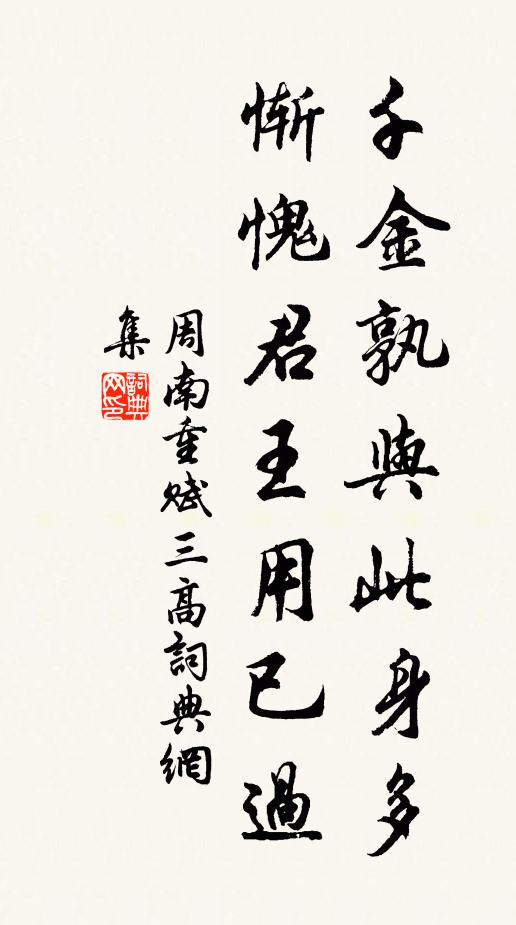 千金孰與此身多
慚愧君王用已過
周南重賦三高詞典網
集
詞典网印